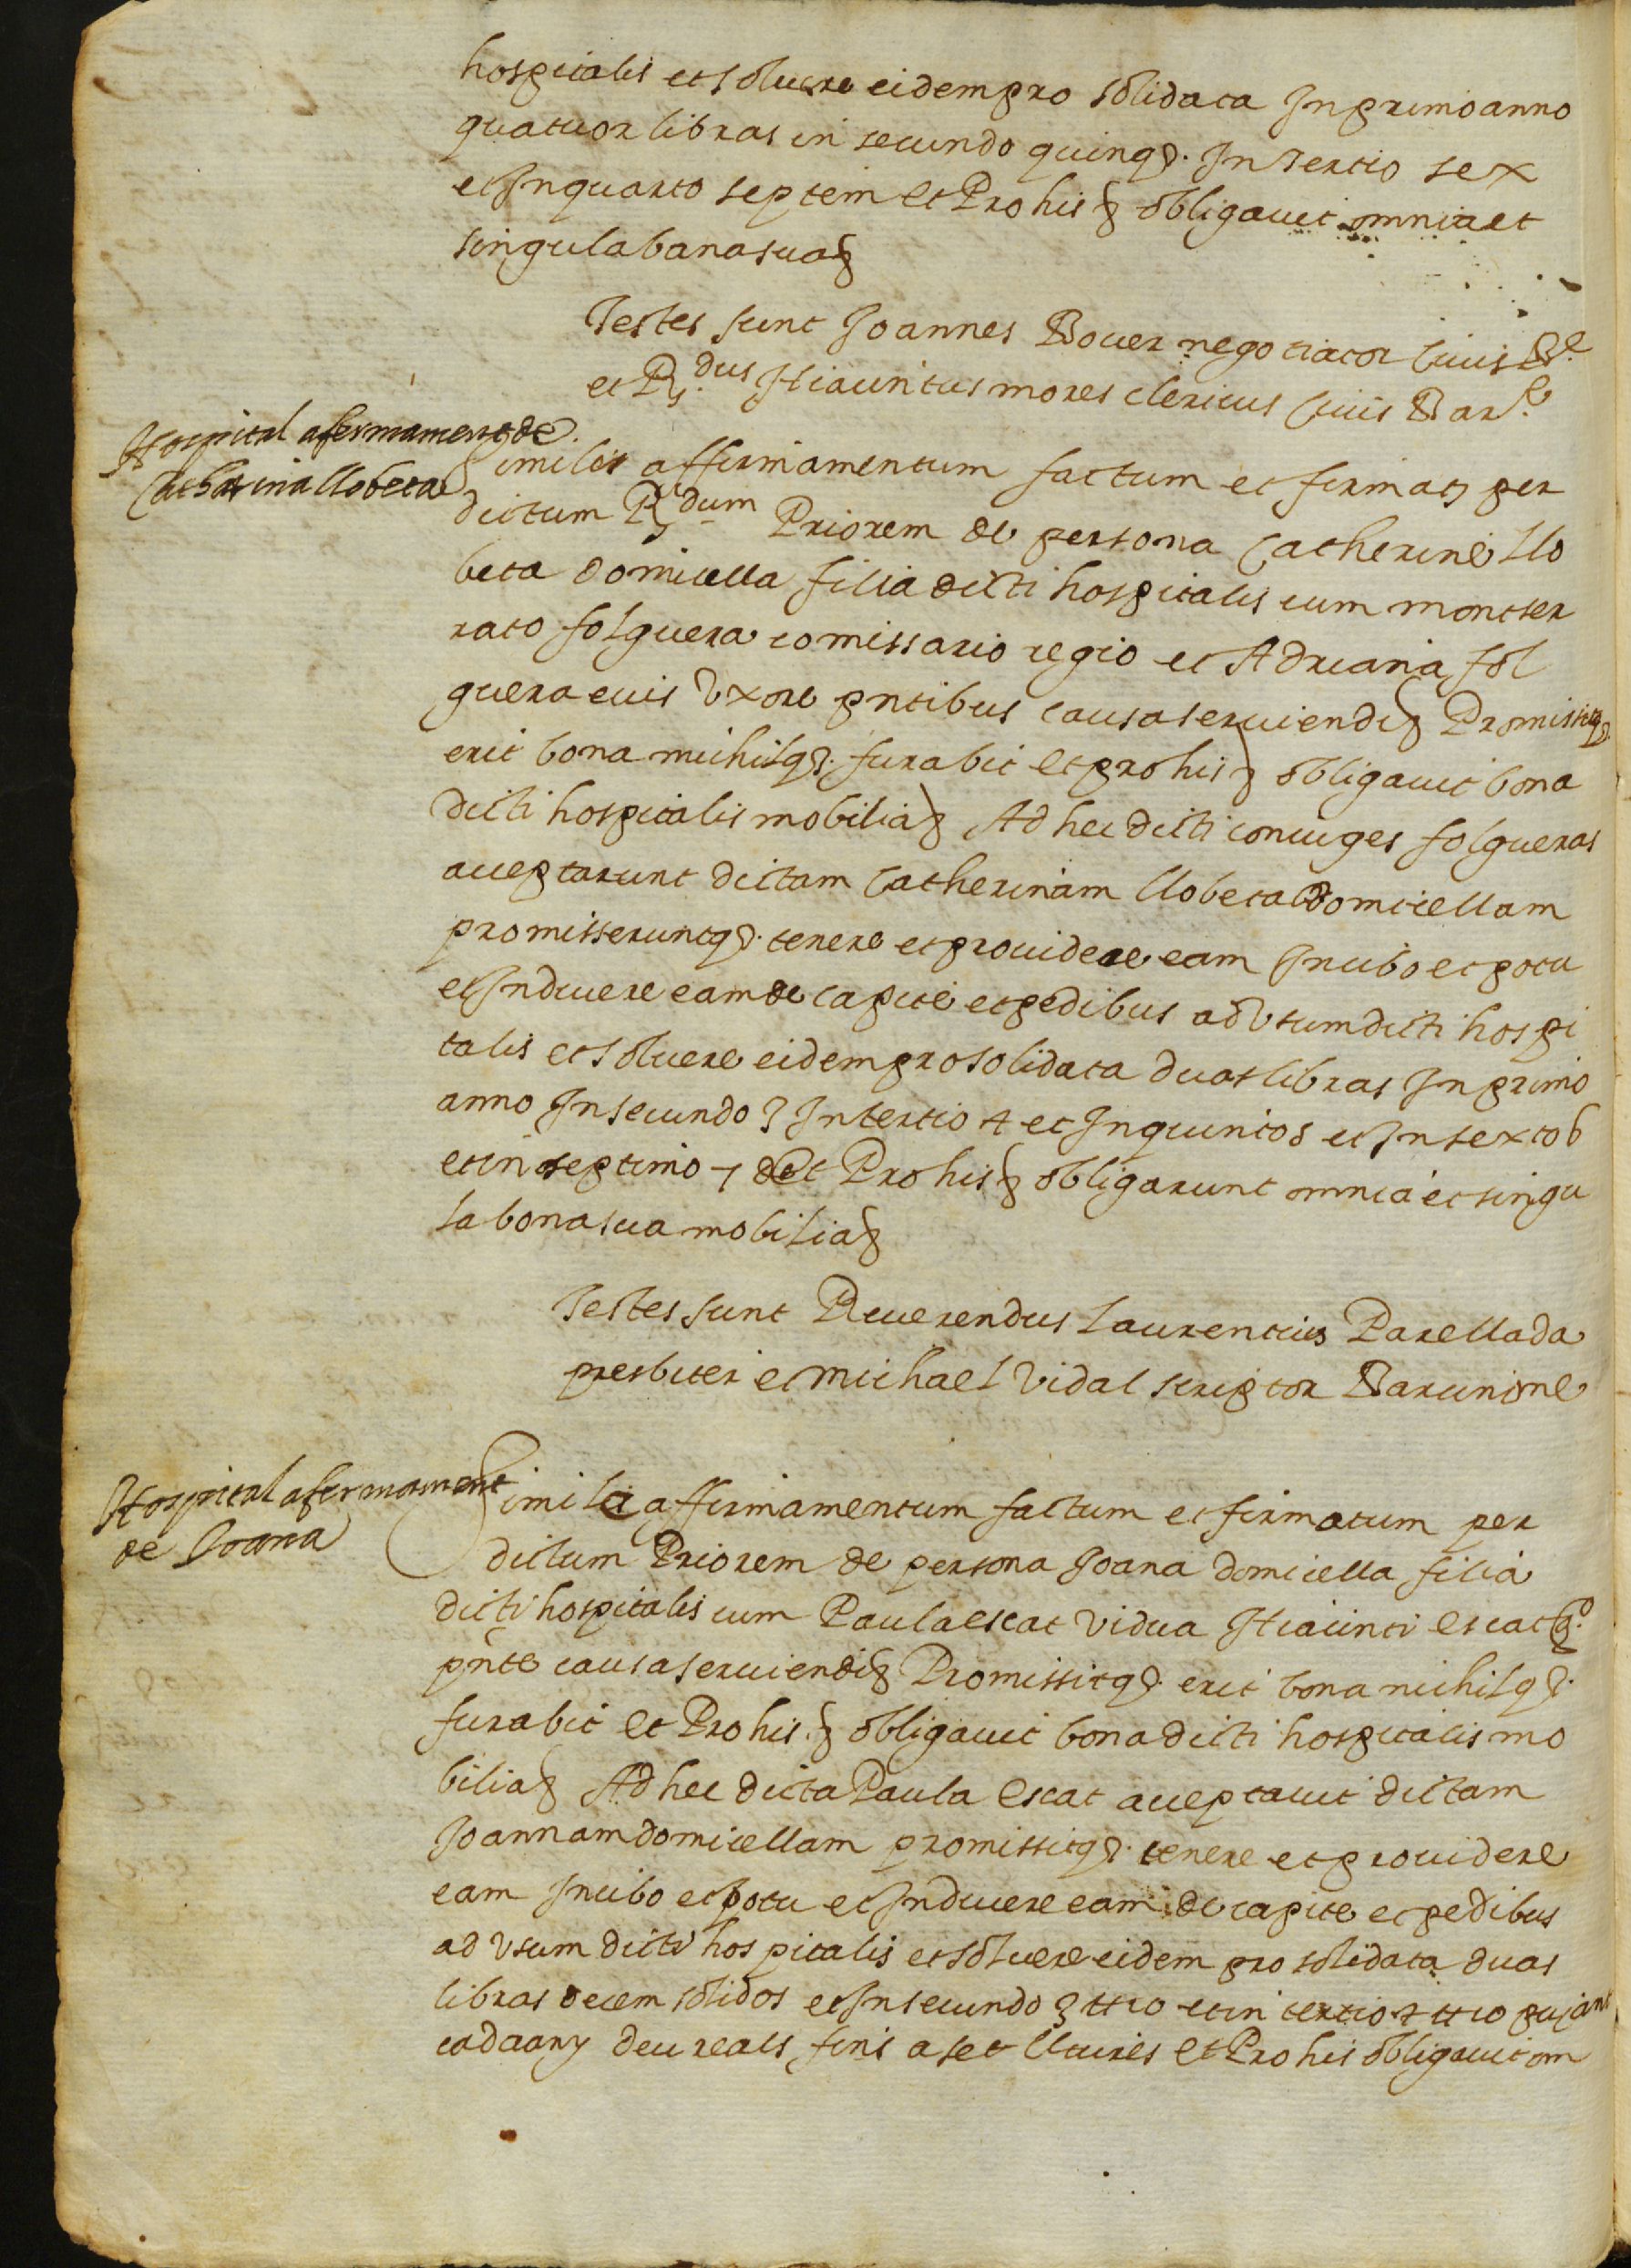 hospitalis et soluere eidem pro solidata In primo anno
quatuor libras in secundo quinq3. In tertio sex
et In quarto septem et Pro his § obligauit omnia et
singula bona sua §
Testes sunt Joannes Bouer negotiator Ciuis Be
et Rdus Hiacintus mores clericus Ciuis Bare
Hospital afermament de
Catharina llobeta
Similer affirmamentum factum et firmatz per
dictum Rdum Priorem de persona Catherine Llo
beta domicella filia dicti hospitalis cum montser
rato folguera comissario regio et Adriana fol
guera euis vxore pntibus causa seruiendi § Promissitq3.
erit bona michilq3. furabit et pro his § obligauit bona
dicti hospitalis mobilia § Ad hec dicti coniuges folgueras
acceptarunt dictam Catherinam llobeta domicellam
promisseruntq3. tenere et prouidere eam In cibo et potu
et Induere eam de capite et pedibus ad vsum dicti hospi
talis et soluere eidem pro solidata duas libras In primo
anno In secundo 3 In tertio 4 et In quinto 5 et In sexto 6
et in septimo 7 Et Pro his § obligarunt omnia et singu
la bona sua mobilia §
Testes sunt Reuerendus Laurentius Parellada
presbiter et michael Vidal scriptor Barcinone
Hospital afermament
de Joana
Simile affirmamentum factum et firmatum per
dictum Priorem de persona Joana domicella filia
dicti hospitalis cum Paula escat vidua Hiacinti escat qo.
pnte causa seruiendi § Promissitq3. erit bona nichilq3.
furabit et Pro his § obligauit bona dicti hospitalis mo
bilia § Ad hec dicta Paula Escat acceptauit dictam
Joannam domicellam promissitq3. tenere et prouidere
eam In cibo et potu et Induere eam de capite et pedibus
ad vsum dicti hospitalis et soluere eidem pro solidata duas
libras decem solidos et In secundo 3 tt 10 et in tertio 4 tt 10 pujant
cada any deu reals fins a set lliures et Pro his obligauit om